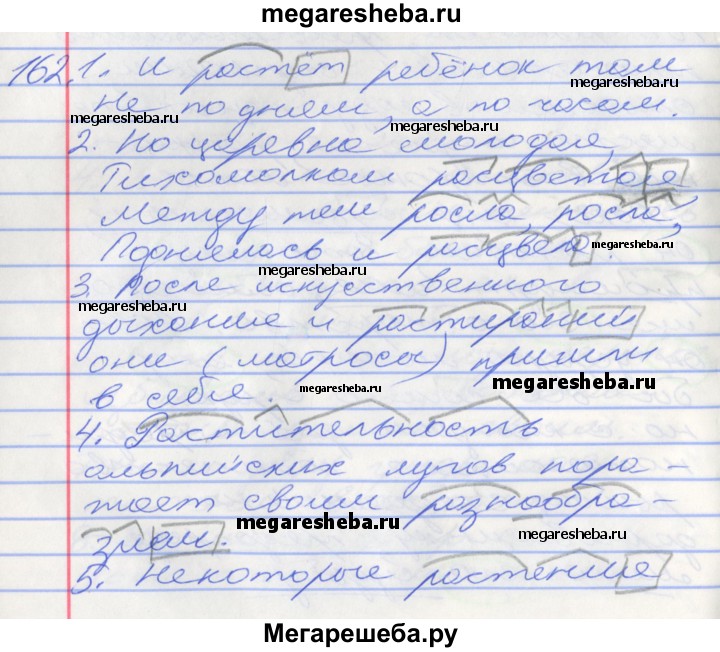 megaresheba.ru
162. 1. И растёт ребёнок там
Не по дням, а по часам.
megaresheba.ru
megaresheba.ru
2. Но царевна молодая,
Тихомолком расцветая
Между тем росла, росла,
Поднялась и расцвела.
megaresheba.ru
megaresheba.ru
3. После искусственного
megaresheba.ru
дыхания и растираний
они (матросы) пришли
в себя.
megaresheba.ru
megaresheba.ru
4. Растительность
альпийских лугов пора-
жает своим разнообра-
зием.
megaresheba.ru
megaresheba.ru
5. Некоторые растения
Мегарешеба.ру